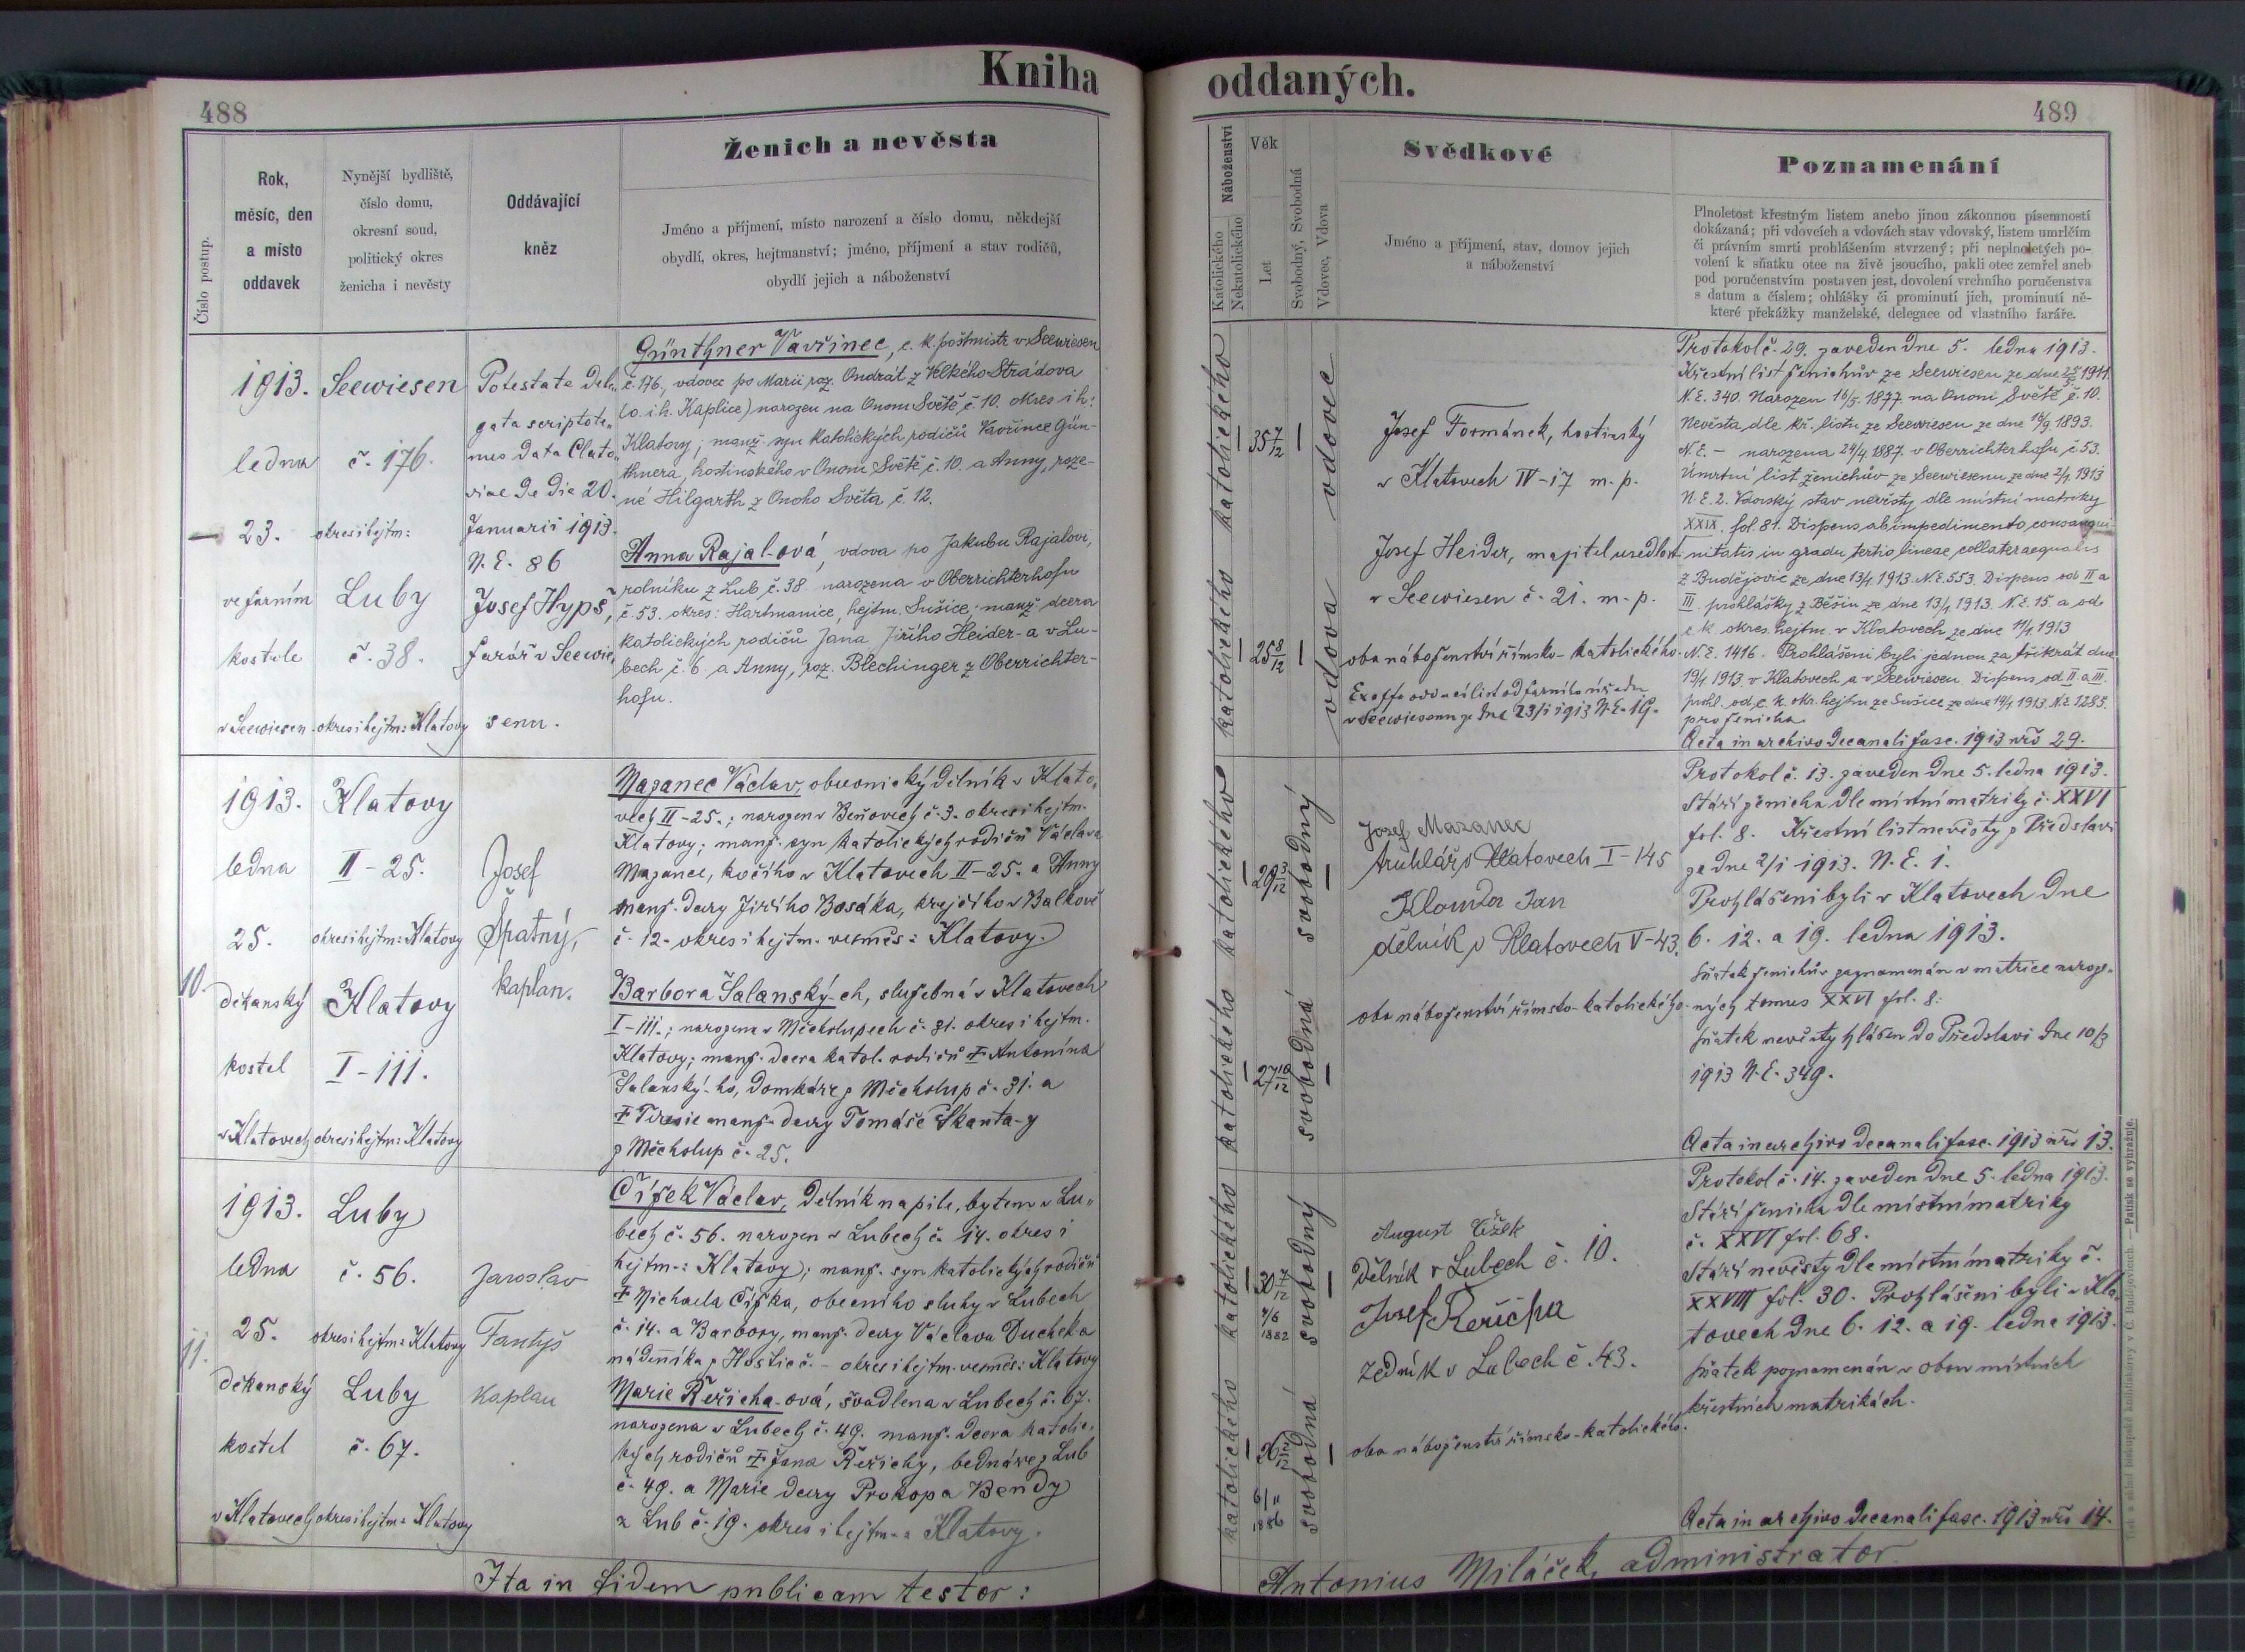 Kniha oddaných.
488
489
Číslo postup.
Rok,
měsíc, den
a místo
oddavek
Nynější bydliště,
číslo domu,
okresní soud,
politický okres
ženicha i nevěsty
Oddávající
kněz
Ženich a nevěsta
Jméno a příjmení, místo narození a číslo domu, někdejší
obydlí, okres, hejtmanství; jméno, příjmení a stav rodičů,
obydlí jejich a náboženství
Náboženství
Katolického
Nekatolického
Věk
Let
Svobodný, Svobodná
Vdovec, Vdova
Svědkové
Jméno a příjmení, stav, domov jejich
a náboženství
Poznamenání
Plnoletost křestným listem anebo jinou zákonnou písemností
dokázaná; při vdovcích a vdovách stav vdovský, listem umrlčím
či právním smrti prohlášením stvrzený; při neplnoletých po-
volení k sňatku otce na živě jsoucího, pakli otec zemřel aneb
pod poručenstvím postaven jest, dovolení vrchního poručenstva
s datum a číslem; ohlášky či prominutí jich, prominutí ně-
které překážky manželské, delegace od vlastního faráře.
1913.
ledna
23.
ve farním
kostele
v Seewiesen
Seewiesen
č. 176.
okres i hejtm:
Luby
č. 38.
okres i hejtm: Klatovy
Potestate dele„
gata scripto te„
nus data Clato„
viae de die 20.
Januarii 1913.
N. E. 86
Josef Hypš,
farář v Seewie„
senu.
Günthner Vavřinec, c. k. poštmistr v Seewiesen
č. 176, vdovec po Marii roz. Ondrát z Velkého Strádova
(o. i h. Kaplice) narozen na Onom Světě č. 10. okres i h:
Klatovy; manž. syn katolických rodičů Vavřince Gün-
thnera, hostinského v Onom Světě č. 10. a Anny, roze-
né Hilgarth z Onoho Světa č. 12.
Anna Rajal-ová, vdova po Jakubu Rajalovi,
rolníku z Lub č. 38 narozena v Oberrichterhofu
č. 53. okres: Hartmanice, hejtm. Sušice; manž. dcera
katolických rodičů Jana Jiřího Heider-a v Lu-
bech č. 6 a Anny, roz. Blechinger z Oberrichter-
hofu.
katolického katolického
1 35 7/12 1
vdovec
1 25 8/12 1
vdova
Josef Formánek, hostinský
v Klatovech IV-17 m. p.
Josef Heider, majitel usedlosti
v Seewiesen č. 21. m. p.
oba náboženství římsko-katolického.
Ex offo oddací list od farního úřadu
v Seewiesenu ze dne 23/1 1913 N. E. 19.
Protokol č. 29. zaveden dne 5. ledna 1913.
Křestní list ženichův ze Seewiesen ze dne 25/5 1911
N. E. 340. Narozen 16/5. 1877. na Onom Světě č. 10.
Nevěsta dle kř. listu ze Seewiesen ze dne 16/9 1893.
N. E. – narozena 24/4 1887 v Oberrichterhofu č 53.
Úmrtní list ženichův ze Seewiesenu ze dne 2/1 1913
N. E. 2. Vdovský stav nevěsty dle místní matriky
XXIX. fol. 81. Dispens ab impedimento consangui-
nitatis in gradu tertio lineae collater aequalis
z Budějovic ze dne 13/1. 1913. N. E. 553. Dispens od II a
III. prohlášky z Běšin ze dne 13/1 1913. N. E. 15. a od
c k okres. hejtm. v Klatovech ze dne 11/1 1913
N. E. 1416. Prohlášeni byli jednou za třikrát dne
19/1. 1913. v Klatovech a v Seewiesen. Dispens od II a III.
prohl. od c. k. okr. hejtm ze Sušice ze dne 14/1 1913 N. E. 1285.
pro ženicha.
Acta in archivo decanali fasc. 1913 nro 29.
10.
1913.
ledna
25.
děkanský
kostel
v Klatovech
Klatovy
II-25.
okres i hejtm: Klatovy
Klatovy
I-111.
okres i hejtm: Klatovy
Josef
Špatný,
kaplan.
Mazanec Václav, obuvnický dělník v Klato„
vech II-25.; narozen v Beňovech č. 3. okres i hejtm.
Klatovy; manž. syn katolických rodičů Václava
Mazance, kočího v Klatovech II-25. a Anny
manž. dcery Jiřího Bosáka, krejčího v Balkově
č. 12. okres i hejtm. vesměs: Klatovy.
Barbora Salanský-ch, služebná v Klatovech
I-111.; narozena v Měcholupech č. 31. okres i hejtm.
Klatovy; manž. dcera katol. rodičů † Antonína
Salanský-ho, domkáře z Měcholup č. 31. a
† Terezie manž. dcery Tomáše Skanta-y
z Měcholup č. 25.
katolického katolického
1 29 3/12 1
svobodný
1 27 10/12 1
svobodná
Josef Mazanec
truhlář v Klatovech I-145
Klouda Jan
dělník v Klatovech V-43.
oba náboženství římsko-katolického.
Protokol č. 13. zaveden dne 5. ledna 1913.
Stáří ženicha dle místní matriky č. XXVI
fol. 8. Křestní list nevěsty z Předslavi
ze dne 2/1 1913. N. E. 1.
Prohlášeni byli v Klatovech dne
6. 12. a 19. ledna 1913.
Sňatek ženichův zaznamenán v matrice naroze-
ných tomus XXVI fol. 8.
Sňatek nevěsty hlášen do Předslavi dne 10/3
1913 N. E. 349.
Acta in archivo decanali fasc. 1913 nro 13.
11.
1913.
ledna
25.
děkanský
kostel
v Klatovech
Luby
č. 56.
okres i hejtm: Klatovy
Luby
č. 67.
okres i hejtm: Klatovy
Jaroslav
Fantyš
kaplan
Čížek Václav, dělník na pile, bytem v Lu„
bech č. 56. narozen v Lubech č. 14. okres i
hejtm.: Klatovy; manž. syn katolických rodičů
† Michaela Čížka, obecního sluhy v Lubech
č. 14. a Barbory, manž. dcery Václava Ducheka
nádenníka z Hoštic č. – okres i hejtm. vesměs: Klatovy
Marie Řeřicha-ová, švadlena v Lubech č. 67.
narozena v Lubech č. 49. manž. dcera katolic„
kých rodičů † Jana Řeřichy, bednáře z Lub
č. 49. a Marie dcery Prokopa Bendy
z Lub č. 19. okres i hejtm.: Klatovy.
katolického katolického
4/6
1882
svobodný
6/11
1886
svobodná
August Čížek
Dělník v Lubech č. 10.
Josef Řeřicha
zedník v Lubech č. 43.
oba náboženství římsko-katolického.
Protokol č. 14. zaveden dne 5. ledna 1913.
Stáří ženicha dle místní matriky
č. XXVI fol. 68.
Stáří nevěsty dle místní matriky č.
XXVIII fol. 30. Prohlášeni byli v Kla„
tovech dne 6. 12. a 19. ledna 1913.
Sňatek poznamenán v obou místních
křestních matrikách.
Acta in archivo decanali fasc. 1913 nro 14.
Ita in fidem publicam testor:
Antonius Miláček, administrator
Patisk se vyhražuje.